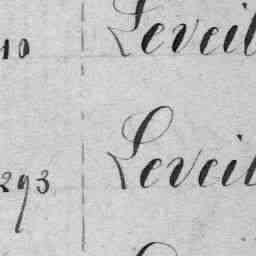 10 Leveil
293 Leveil